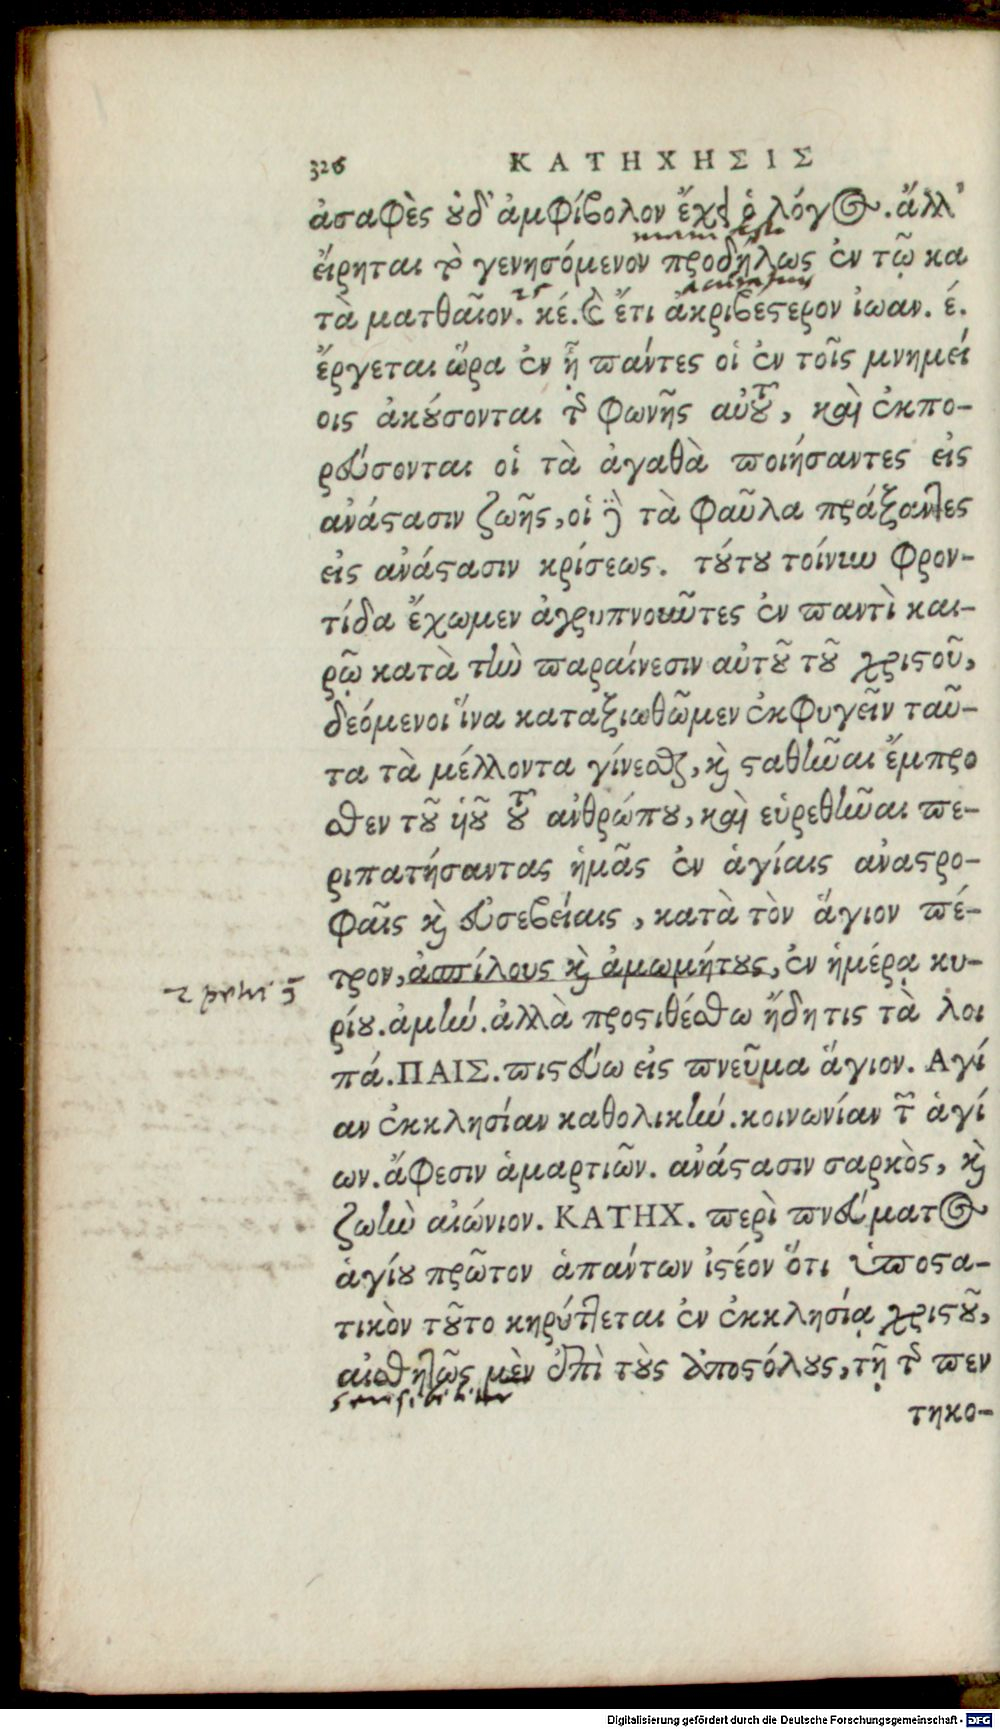 326 ΚΑΤΗΧΗΣΙΣ
ἀσαφὲς ȣ̓δ' ἀμφίβολον ἔχει ὁ λόγος. ἀλλ'
manifeste
εἴρηται τὸ γενησόμενον προδήλως ἐν τῷ κα
25
τὰ ματθαῖον. κέ. καὶ ἔτι ἀκριβέςερον ἰωαν. έ.
ἔρχεται ὥρα ἐν ᾗ ϖάντες οἱ ἐν τοῖς μνημεί
οις ἀκȣ́σονται τῆς φωνῆς αὐτȣ͂, καὶ ἐκπο-
ρεύσονται οἱ τὰ ἀγαθὰ ϖοιήσαντες εἰς
ἀνάςασιν ζωῆς, οἱ δὲ τὰ φαῦλα πράξαντες
εἰς ἀνάςασιν κρίσεως. τȣ́τȣ τοίνυν φρον-
τίδα ἔχωμεν ἀγρυπνοῦντες ἐν ϖαντὶ και-
ρῷ κατὰ τὴν ϖαραίνεσιν αὐτȣ͂ τȣ͂ χριςοῦ,
δεόμενοι ἵνα καταξιωθῶμεν ἐκφυγεῖν ταῦ-
τα τὰ μέλλοντα γίνεσθαι, καὶ ςαθῆναι ἔμπρο
σθεν τȣ͂ ὑιȣ͂ τȣ͂ ἀνθρώπȣ, καὶ εὑρεθῆναι ϖε-
ριπατήσαντας ἡμᾶς ἐν ἁγίαις ἀναςρο-
φαῖς καὶ εὐσεβείαις, κατὰ τὸν ἅγιον ϖέ-
τρον, ἀσπίλους καὶ ἀμωμήτȣς, ἐν ἡμέρᾳ κυ-
ρίȣ. ἀμήν. ἀλλὰ προςιθέσθω ἤδη τις τὰ λοι
πά. ΠΑΙΣ. ϖιςεύω εἰς ϖνεῦμα ἅγιον. Αγί
αν ἐκκλησίαν καθολικήν. κοινωνίαν τῶν ἁγί
ων. ἄφεσιν ἁμαρτιῶν. ἀνάςασιν σαρκὸς, καὶ
ζωὴν αἰώνιον. ΚΑΤΗΧ. ϖερὶ ϖνεύματος
ἁγίȣ πρῶτον ἁπάντων ἰςέον ὅτι ὑϖοςα-
τικὸν τȣ͂το κηρύττεται ἐν ἐκκλησίᾳ χριςȣ͂,
αἰσθητῶς μὲν ἐπὶ τȣ̀ς ἀποςόλȣς, τῇ τῆς ϖεν
sensibiliter
τηκο-
Digitalisierung gefördert durch die Deutsche Forschungsgemeinschaft - DFG